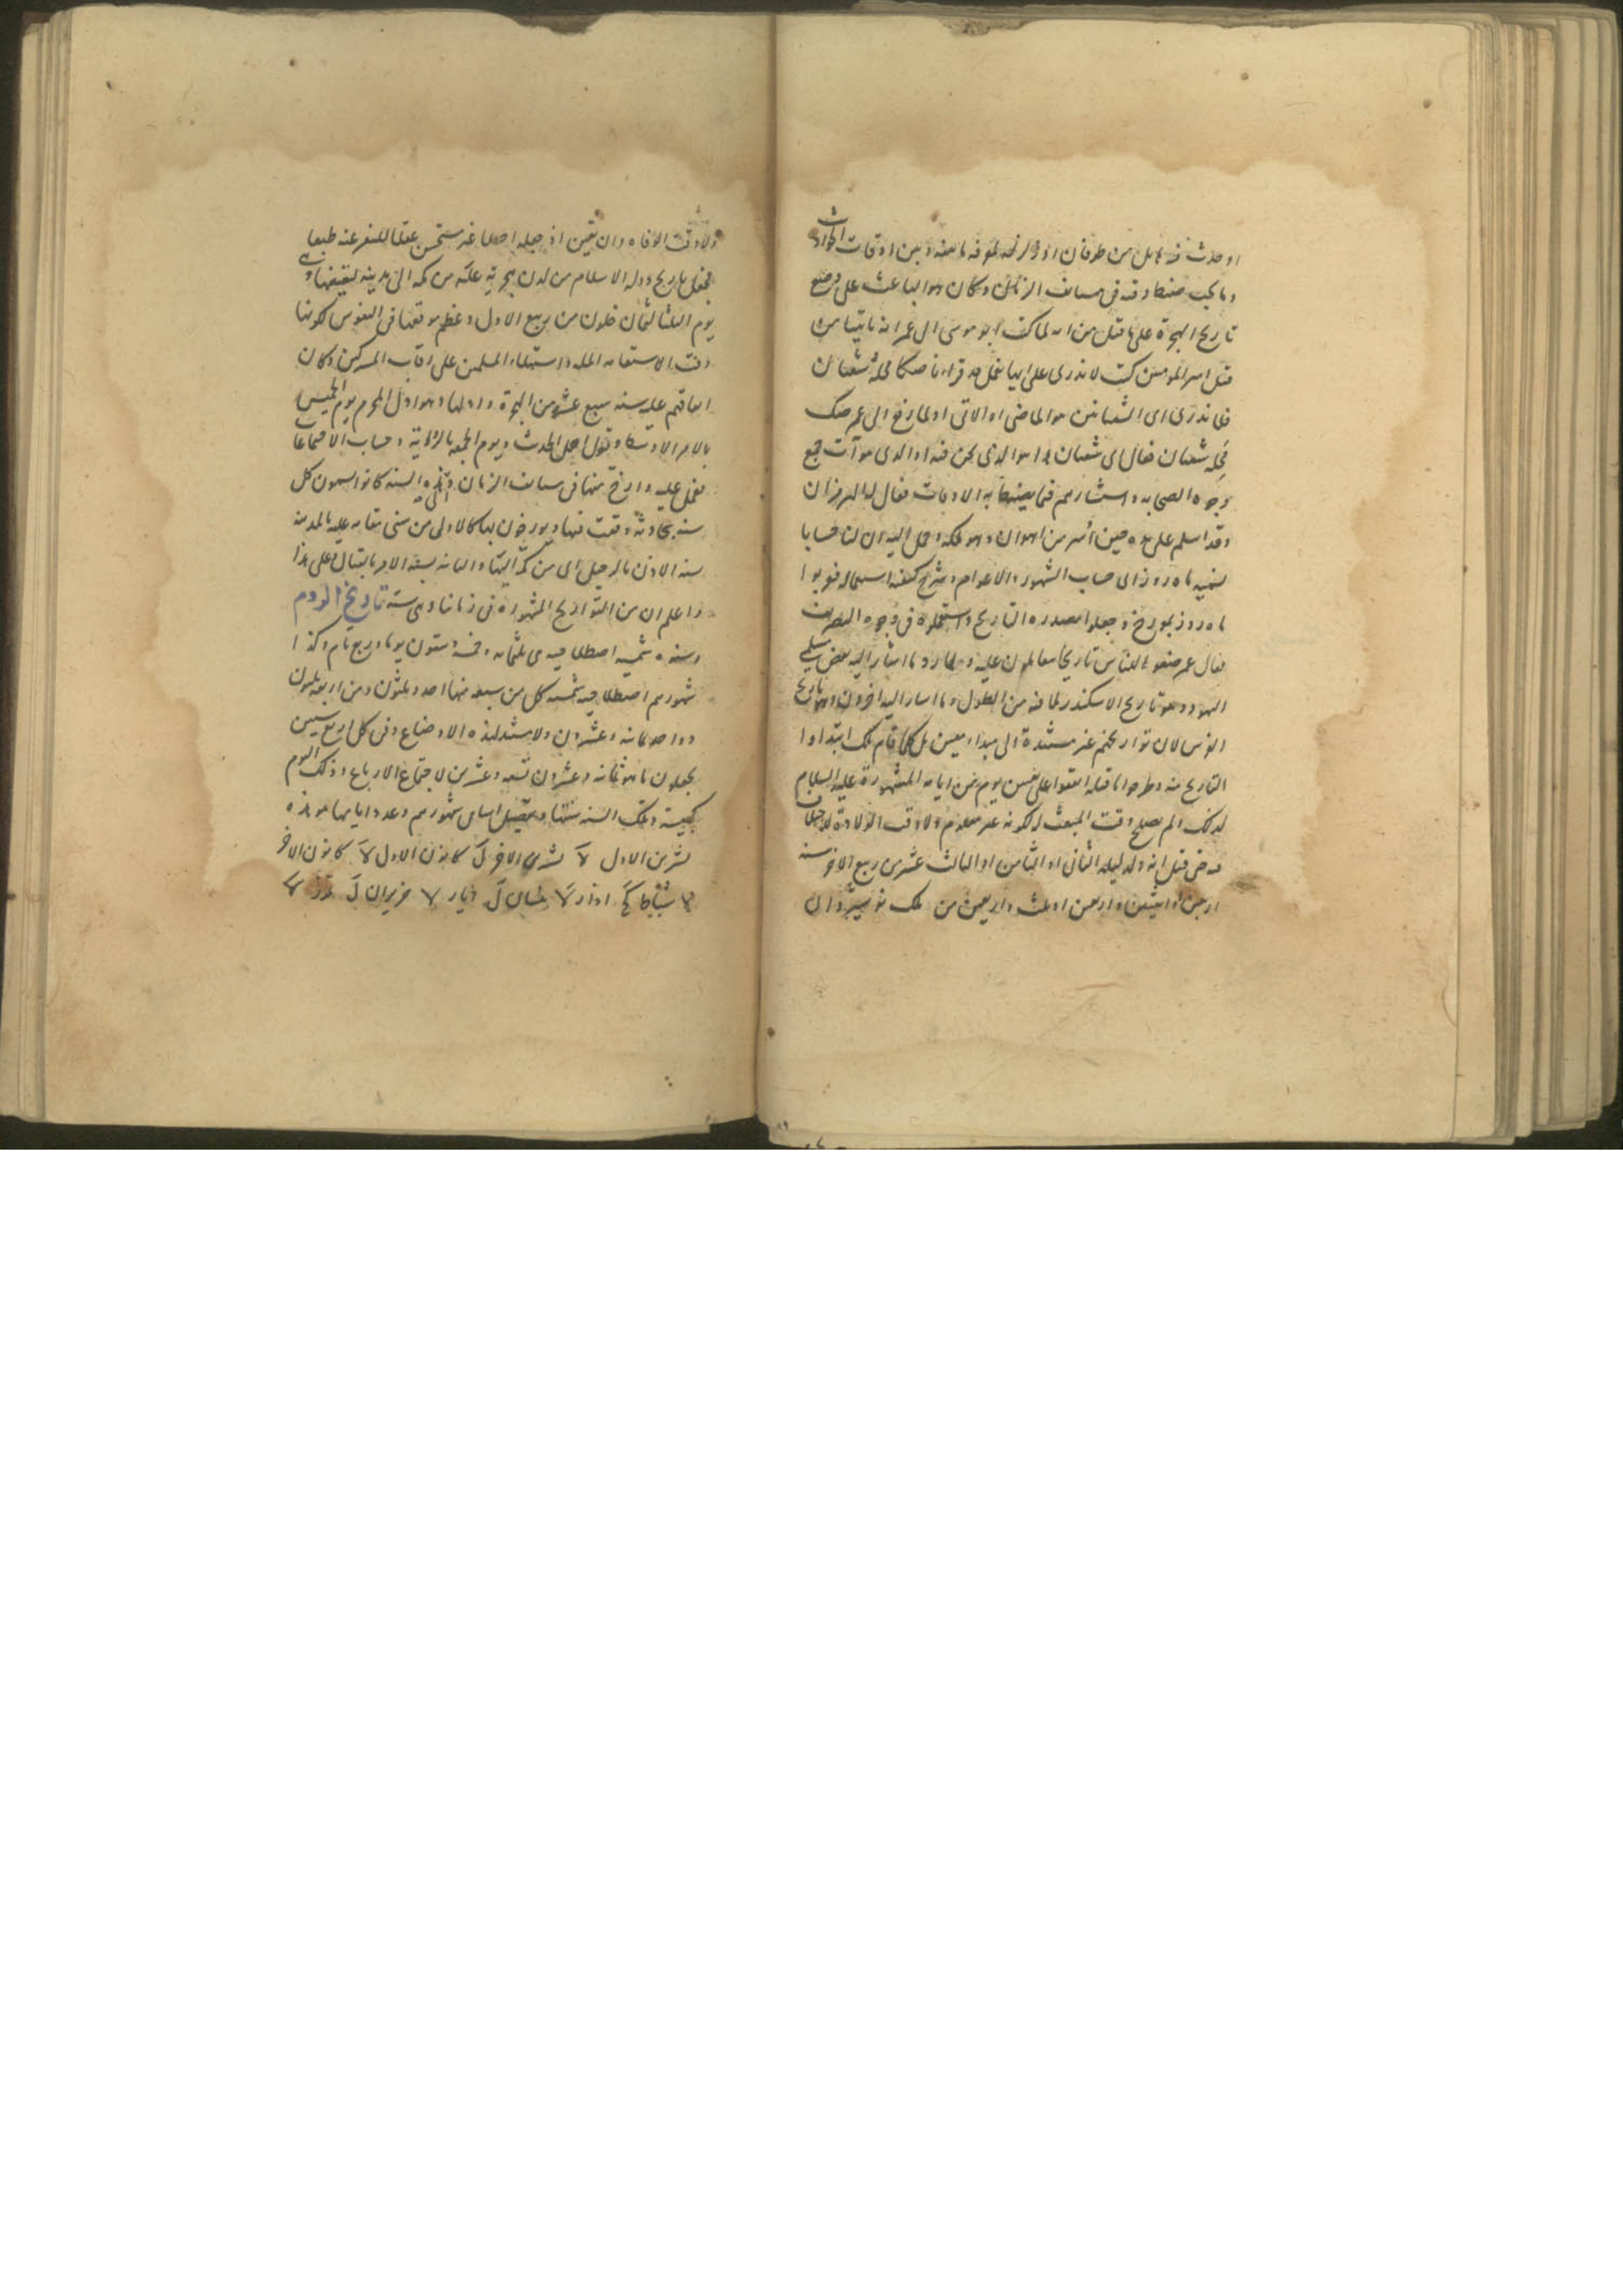 او حدث فيه هايل من طوفان او زلزلة لمعرفة ما بينه وبين اوقات الحوادث
وما يجب ضبط وقته في مستانف الزمان وكان هو الباعث على وضع
تاريخ الهجرة على ما قيل من انه لما كتب ابو موسى الى عمر انه ياتينا من
قبل امير المومنين كتب لا ندرى على ايها نعمل قد قرانا صكا محله شعبان
فما ندرى اى الشعبانين هو الماضى او الاتى او لما رفع الى عمر صك
محله شعبان فقال اى شعبان هذا هو الذى نحن فيه او الذى هو آت جمع
وجوه الصحابه واستشارهم فيما يضبط به الاوقات فقال له الهرمزان
وقد اسلم على يده حين اسر من اهواز وهو ملكه وحمل اليه ان لنا حسابا
نسميه ماه روز اى حساب الشهور والاعوام وشرح كيفية استعماله فعربوا
ماه روز بمورخ وجعلوا مصدره التاريخ واستعملوه فى وجوه التصريف
فقال عمر ضعوا للناس تاريخا يتعاملون عليه وما اشار اليه بعض مسلمى
اليهود وهو تاريخ الاسكندر لما فيه من الطول وما اشار اليه اخرون وهو تاريخ
الفرس لان تواريخهم غير مستندة الى مبداء معين بل كلما قام ملك ابتداوا
التاريخ منه وطرحوا ما قبله اتفقوا على تعيين يوم من ايامه المشهورة عليه السلام
لذلك ولم يصلح وقت المبعث له لكونه غير معلوم ولا وقت الولادة للاختلاف
فيه فقيل انه ولد ليلة الثانى او الثامن او الثالث عشر من ربيع الاخر سنة
اربعين او اثنتين واربعين او ثلث واربعين من ملك نوشيروان
ولا وقت الوفاه وان تعين اذ جعله اصلا غير مستحسن عقلا للنفر عنه طبعا
فجعل تاريخ دولة الاسلام من لدن هجرته عليه من مكه الى مدينه
يوم الثلثا لثمان خلون من ربيع الاول وعظم موقعها فى النفوس لكونها
وقت الاستقامه الملة واستيلاء المسلمين على رقاب المشركين وكان
اتفاقهم عليه سنه سبع عشر من الهجرة واولها وهو اول المحرم يوم الخميس
بالامر الاوسط وقول اهل الحديث ويوم الجمعه بالرؤية وحساب الاجتماعات
فعمل عليه وارخ منها فى مستانف الزمان وقبل هذه السنه كانوا يسمون كل
سنه بحادثة وقعت فيها ويورخون بها كالاولى من سنى مقامه عليه بالمدينه
سنة الاذن بالرحيل اى من مكة اليها والثانيه بسنة الامر بالقتال وعلى هذا
واعلم ان من التواريخ المشهورة فى زماننا وهى ستة تاريخ الروم
وسنوه شمسيه اصطلاحيه هى ثلثمائه وخمسة وستون يوما وربع تام وكذا
شهورهم اصطلاحيه شمسيه كل من سبعه منها احد وثلثون ومن اربعه ثلثون
وواحد ثمانيه وعشرون ولا يستبد لهذه الاوضاع وفى كل اربع سنين
يجعلون ما هو ثمانية وعشرون تسعه وعشرين لاجتماع الارباع وذلك اليوم
كبيسة وتلك السنه سنتها وتفصيل اسامى شهورهم وعدد ايامها هو هذه
تشرين الاول لا تشرين الاخر ل كانون الاول لا كانون الاخر
لا شباط كح اذار لا نيسان ل ايار لا حزيران ل تموز لا